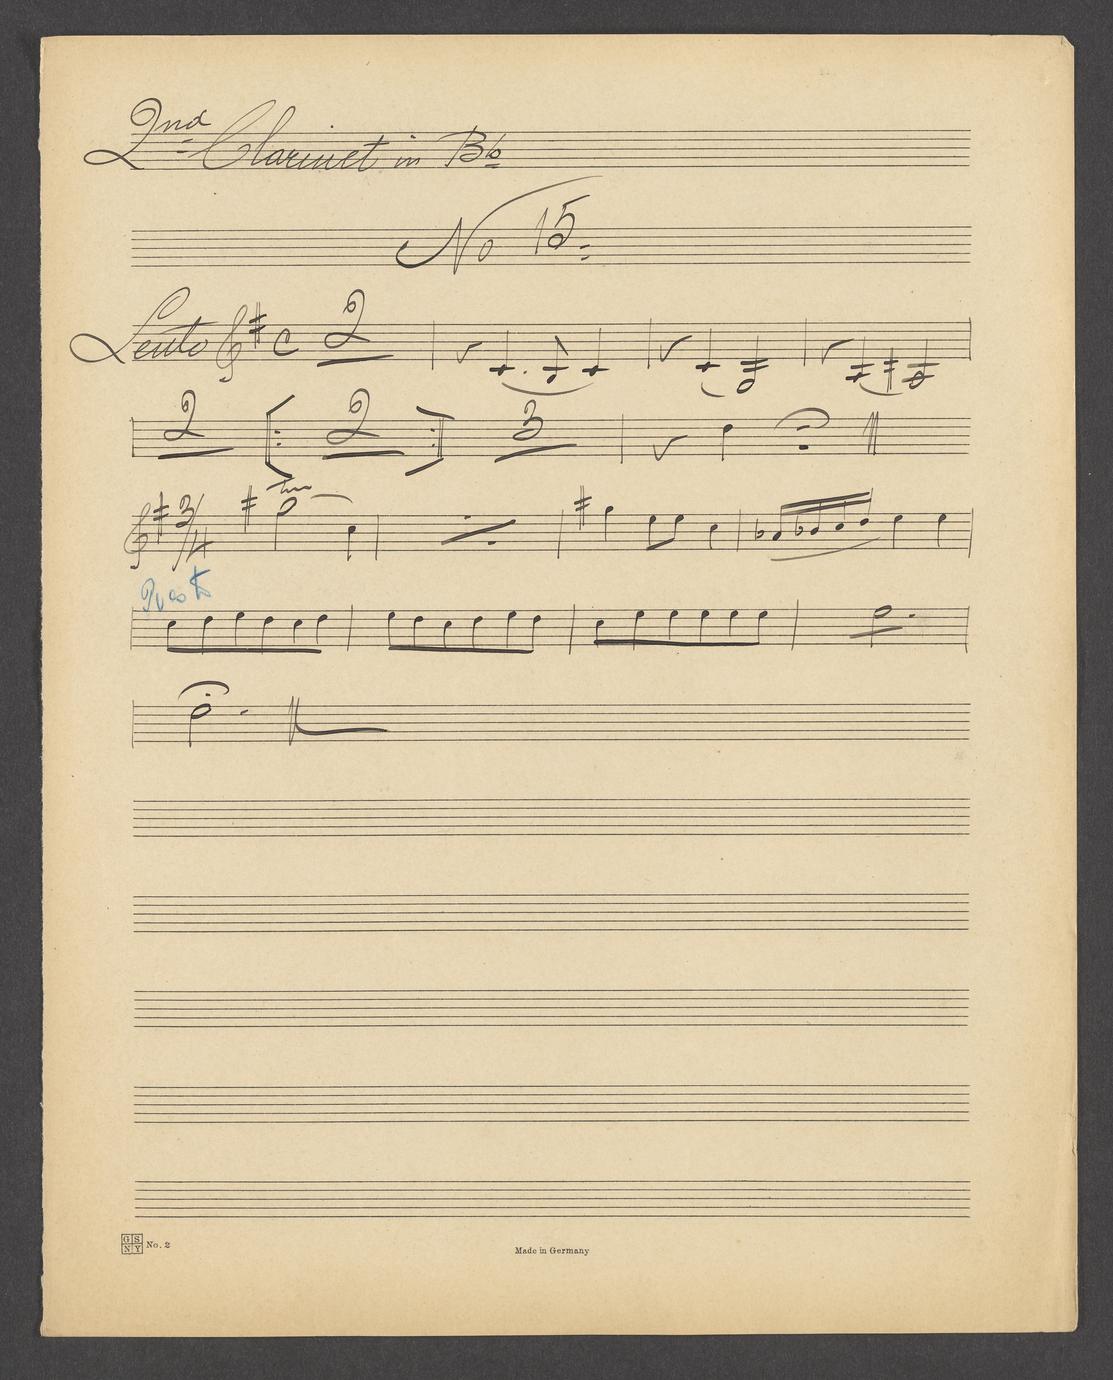 2nd Clarinet in Bb
No 15.
Lento C 2
2 2 3
3/4 tr
Presto
GS NY No. 2
Made in Germany